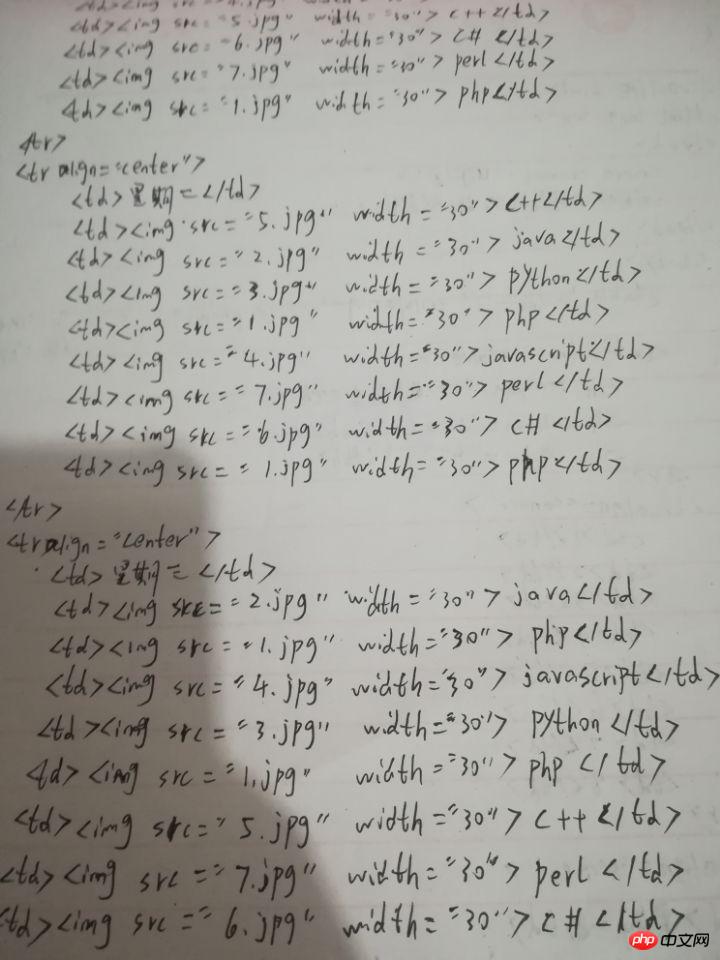 4.jpg"
<td><img src="5.jpg" width="30"> C++</td>
<td><img src="6.jpg" width="30"> C# </td>
<td><img src="7.jpg" width="30"> perl </td>
<td><img src="1.jpg" width="30"> php</td>
</tr>
<tr align="center">
<td> 星期二</td>
<td><img src="5.jpg" width="30"> C++</td>
<td><img src="2.jpg" width="30"> java</td>
<td><img src="3.jpg" width="30"> python</td>
<td><img src="1.jpg" width="30"> php</td>
<td><img src="4.jpg" width="30"> javascript</td>
<td><img src="7.jpg" width="30"> perl </td>
<td><img src="6.jpg" width="30"> C# </td>
<td><img src="1.jpg" width="30"> php</td>
</tr>
<tr align="center">
<td> 星期三 </td>
<td><img src="2.jpg" width="30"> java</td>
<td><img src="1.jpg" width="30"> php</td>
<td><img src="4.jpg" width="30"> javascript</td>
<td><img src="3.jpg" width="30"> python </td>
<td> <img src="1.jpg" width="30"> php </td>
<td><img src="5.jpg" width="30"> C++ </td>
<td><img src="7.jpg" width="30"> perl </td>
<td><img src="6.jpg" width="30"> C# </td>
php 中文网